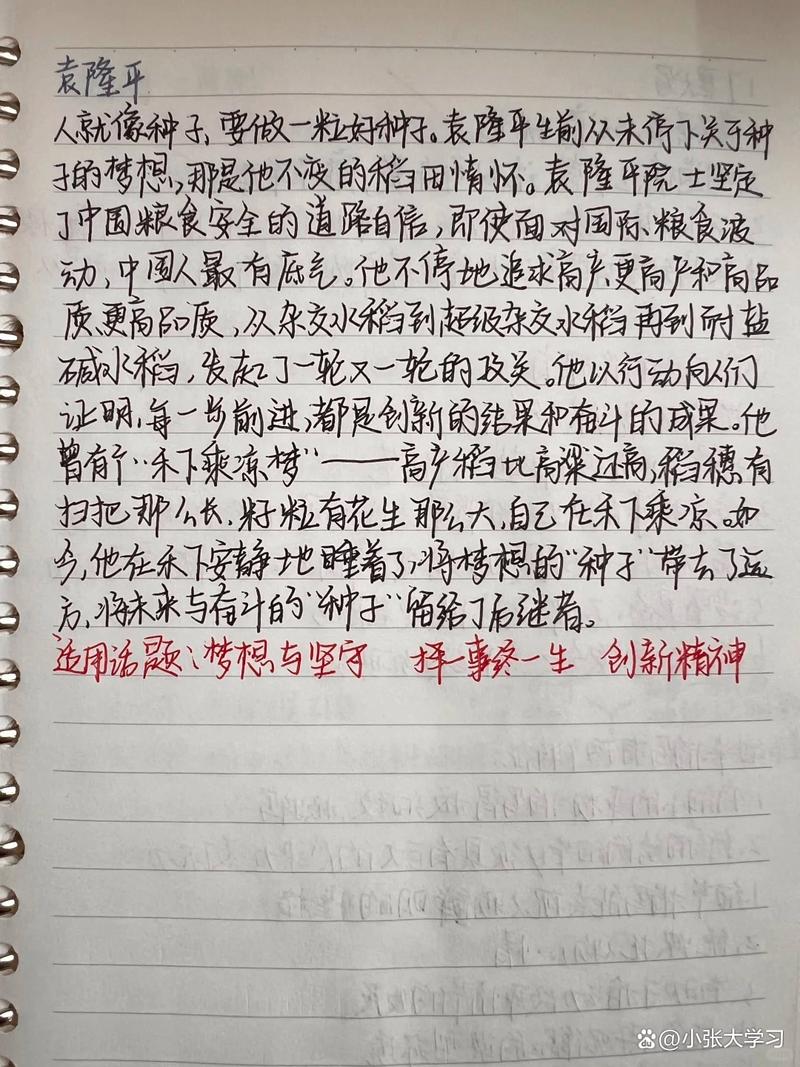 袁隆平
人就像种子，要做一粒好种子。袁隆平生前从未停下关于种
子的梦想，那是他不变的稻田情怀。袁隆平院士坚定
了中国粮食安全的道路自信，即使面对国际粮食波
动，中国人最有底气。他不停地追求高产、更高产和高品
质、更高品质，从杂交水稻到超级杂交水稻再到耐盐
碱水稻，发起了一轮又一轮的攻关。他以行动向人们
证明，每一步前进，都是创新的结果和奋斗的成果。他
曾有个“禾下乘凉梦”——高产稻比高粱还高，稻穗有
扫把那么长，籽粒有花生那么大，自己在禾下乘凉。如
今，他在禾下安静地睡着了，将梦想的“种子”带去了远
方，将未来与奋斗的“种子”留给了后继者。
适用话题：梦想与坚守 择一事终一生 创新精神
@小张大学习